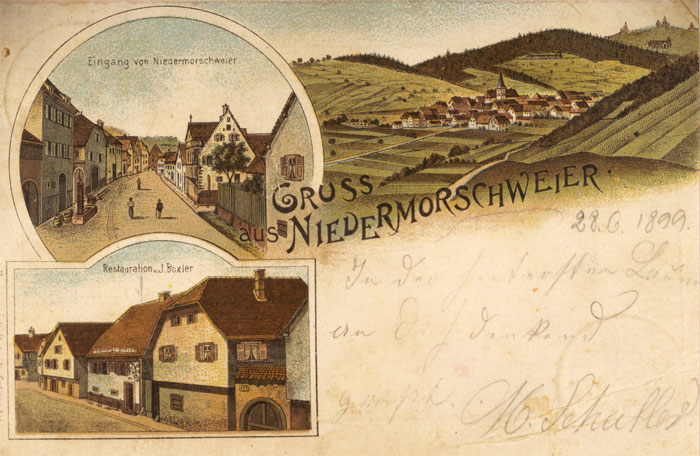 Eingang von Niedermorschweier
GRUSS
aus NIEDERMORSCHWEIER.
Restauration v. J. Boxler
28.6. 1899.
In der heitersten Laune
an Dich denkend
grüßt
M. Schuller